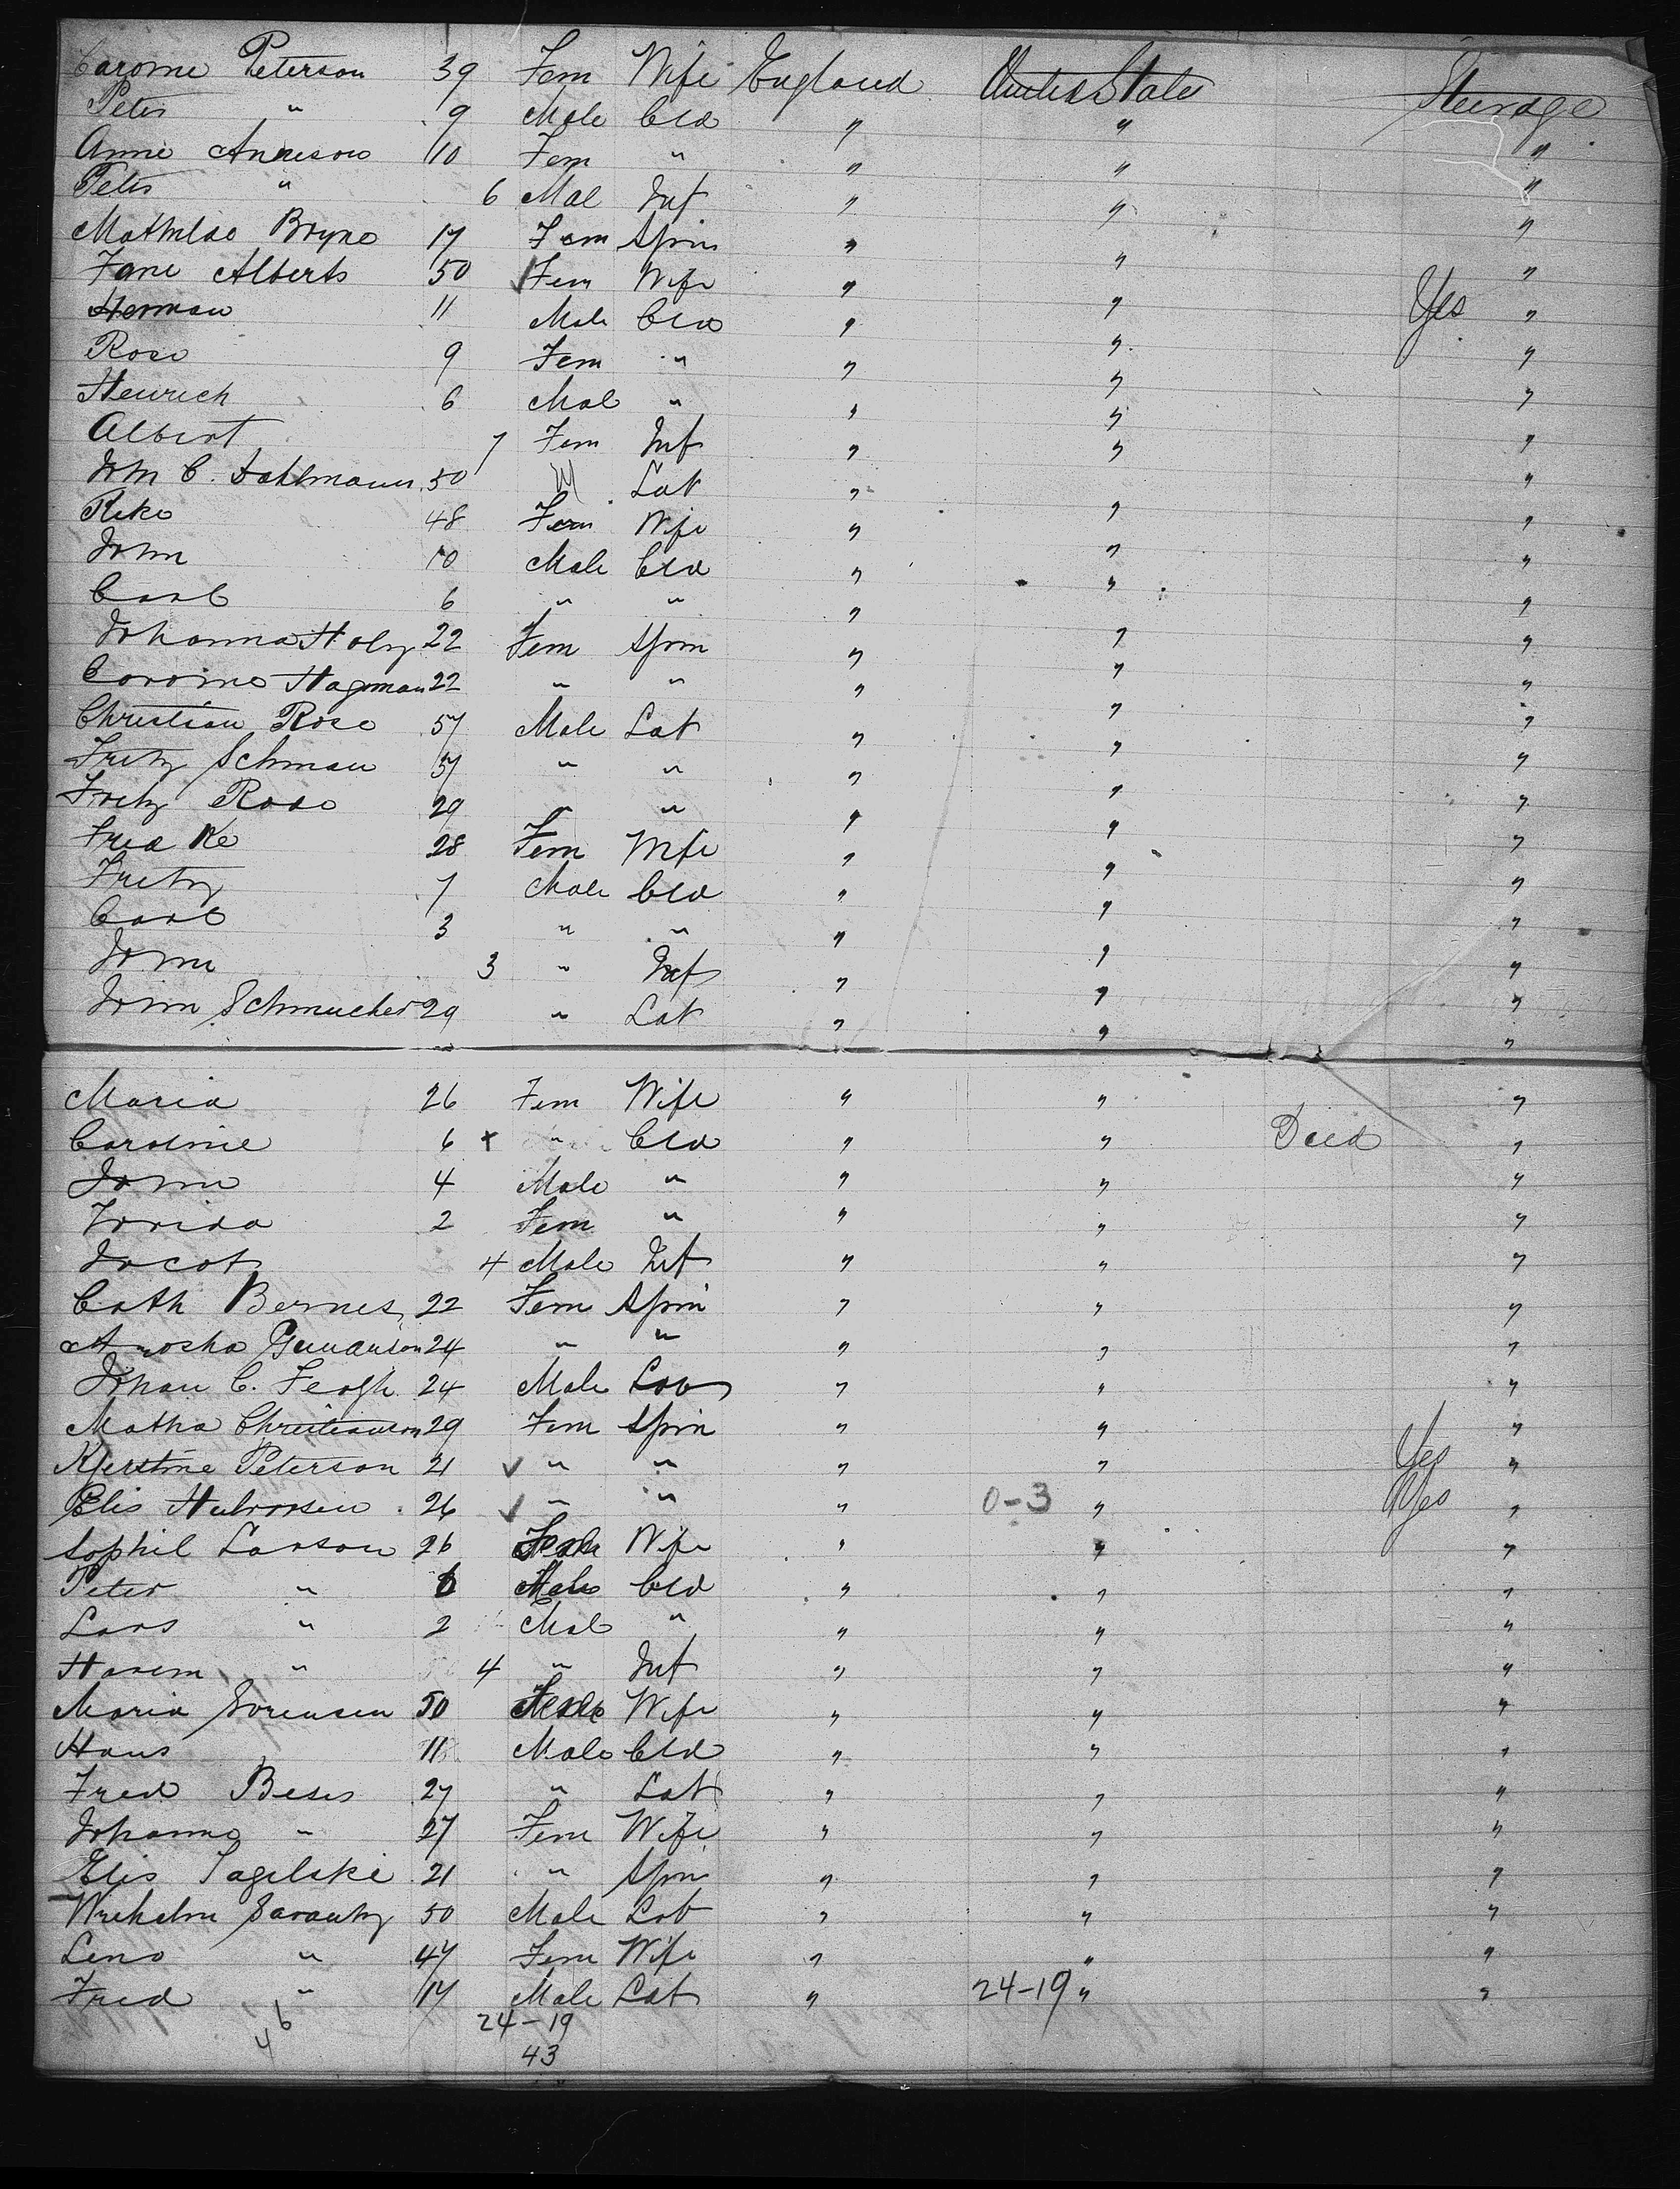 Caroline Peterson 39 Fem Wife England United States Steerage
Peter " 9 Male Cld " " "
Anne Anneson 10 Fem " " " "
Peter " 6 Mal Inf " " "
Mathilde Bryne 17 Fem Spin " " "
Jane Alberts 50 ✓ Fem Wife " " Yes "
Herman 11 Male Cld " " "
Rose 9 Fem " " " "
Heinrich 6 Mal " " " "
Albert 7 Fem Inf " " "
Joh C. Dahlmann 50 M Lab " " "
Reke 48 Fem Wife " " "
John 10 Male Cld " " "
Carl 6 " " " " "
Johanna Holz 22 Fem Spin " " "
Caroline Hagoman 22 " " " " "
Christian Rose 57 Male Lab " " "
Fritz Schman 57 " " " " "
Fritz Rose 29 " " " " "
Fred Ke 28 Fem Wife " " "
Fritz 7 Male Cld " " "
Carl 3 " " " " "
John 3 " Inf " " "
John Schmucher 29 " Lab " " "
Maria 26 Fem Wife " " "
Caroline 6 x " Cld " " Died "
John 4 Male " " " "
Frida 2 Fem " " " "
Jacob 4 Male Inf " " "
Cath Bernes 22 Fem Spin " " "
24 " " " " "
Johan C. 24 Male Lab " " "
Matha Christianson 29 Fem Spin " " "
Kjerstine Peterson 21 ✓ " " " " Yes "
Elis 26 ✓ " " " 0-3 " Yes "
Sophil Larson 26 Wife " " "
Peter " 6 Male Cld " " "
Lars " 2 Mal " " " "
Harem " 4 " Inf " " "
Maria Sorensen 50 Wife " " "
Hans 11 Male Cld " " "
Fred Beses 27 " Lab " " "
Johanna " 27 Fem Wife " " "
Elis Sagelske 21 " Spin " " "
Wilhelm Sarantz 50 Male Lab " " "
Lena " 47 Fem Wife " " "
Fred " 17 Male Lab " 24-19 " "
46 24-19
43